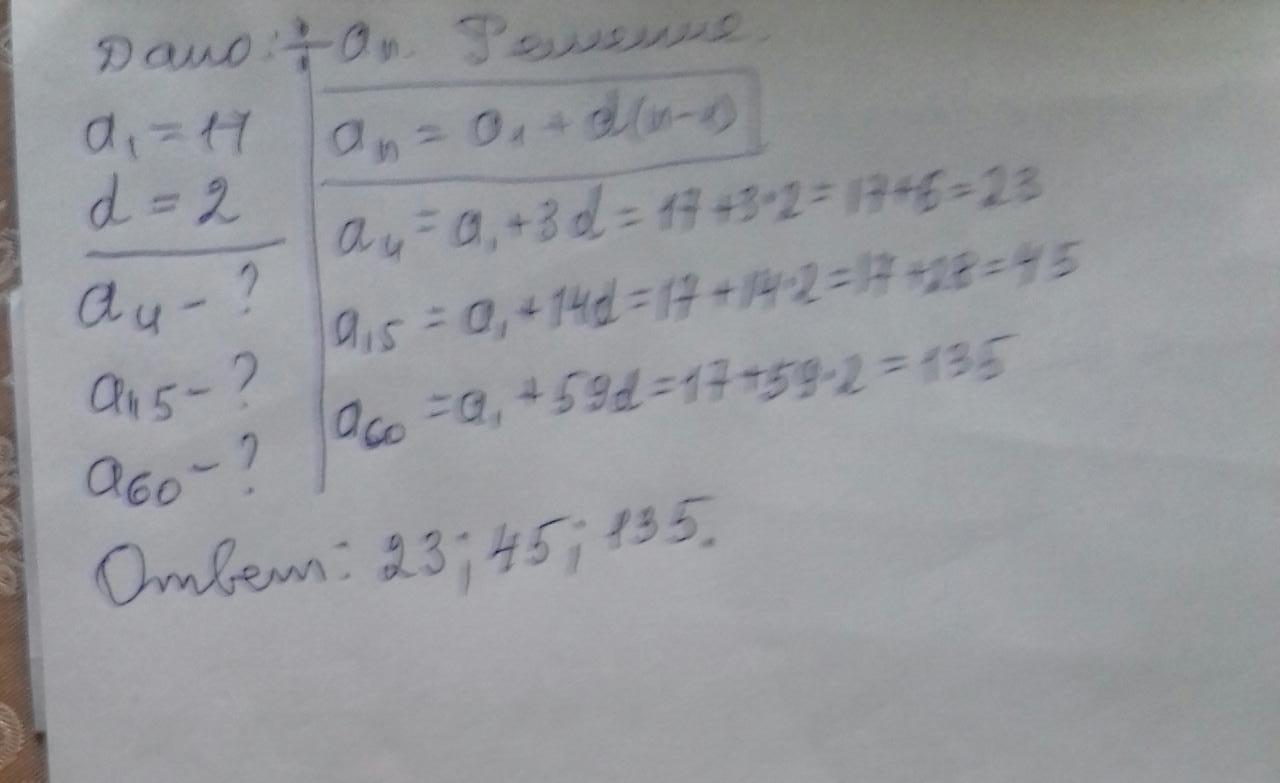 Дано: ÷ aₙ. Решение.
a₁ = 17
d = 2
a₄ - ?
a₁₅ - ?
a₆₀ - ?
aₙ = a₁ + d(n-1)
a₄ = a₁ + 3d = 17 + 3·2 = 17 + 6 = 23
a₁₅ = a₁ + 14d = 17 + 14·2 = 17 + 28 = 45
a₆₀ = a₁ + 59d = 17 + 59·2 = 135
Ответ: 23; 45; 135.